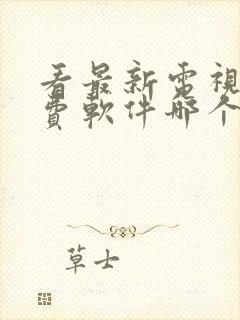 看最新電視
費軟件哪个
草士